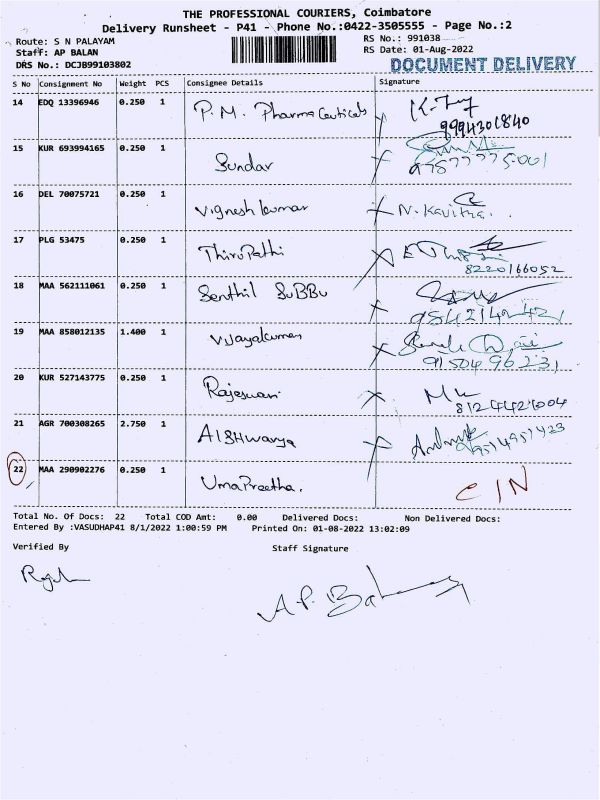 THE PROFESSIONAL COURIERS, Coimbatore
Delivery Runsheet - P41 - Phone No.:0422-3505555 - Page No.:2
Route: S N PALAYAM
RS No.: 991038
Staff: AP BALAN
RS Date: 01-Aug-2022
DRS No.: DCJB99103802
DOCUMENT DELIVERY
S No Consignment No Weight PCS Consignee Details Signature
14 EDQ 13396946 0.250 1 P.M. Pharmaceuticals
9994301840
15 KUR 693994165 0.250 1 Sundar
16 DEL 70075721 0.250 1 Vignesh kumar N. Kavitha.
17 PLG 53475 0.250 1 Thirupathi
8220166052
18 MAA 562111061 0.250 1 Senthil SuBBu
9842142421
19 MAA 858012135 1.400 1 Vijayakumar
9150496231
20 KUR 527143775 0.250 1 Rajeswari
8124421004
21 AGR 700308265 2.750 1 AISHwarya
9514951423
22 MAA 290902276 0.250 1 UmaPreetha. C/N
Total No. Of Docs: 22 Total COD Amt: 0.00 Delivered Docs: Non Delivered Docs:
Entered By :VASUDHAP41 8/1/2022 1:00:59 PM Printed On: 01-08-2022 13:02:09
Verified By Staff Signature
A.P. Balan